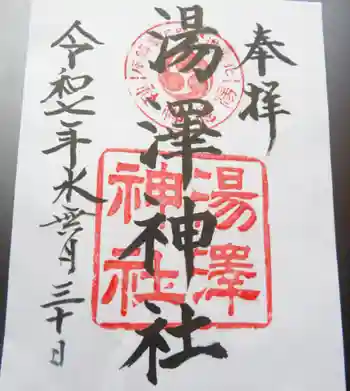 奉拝
湯澤神社
令和七年水無月三十日
湯澤
神社